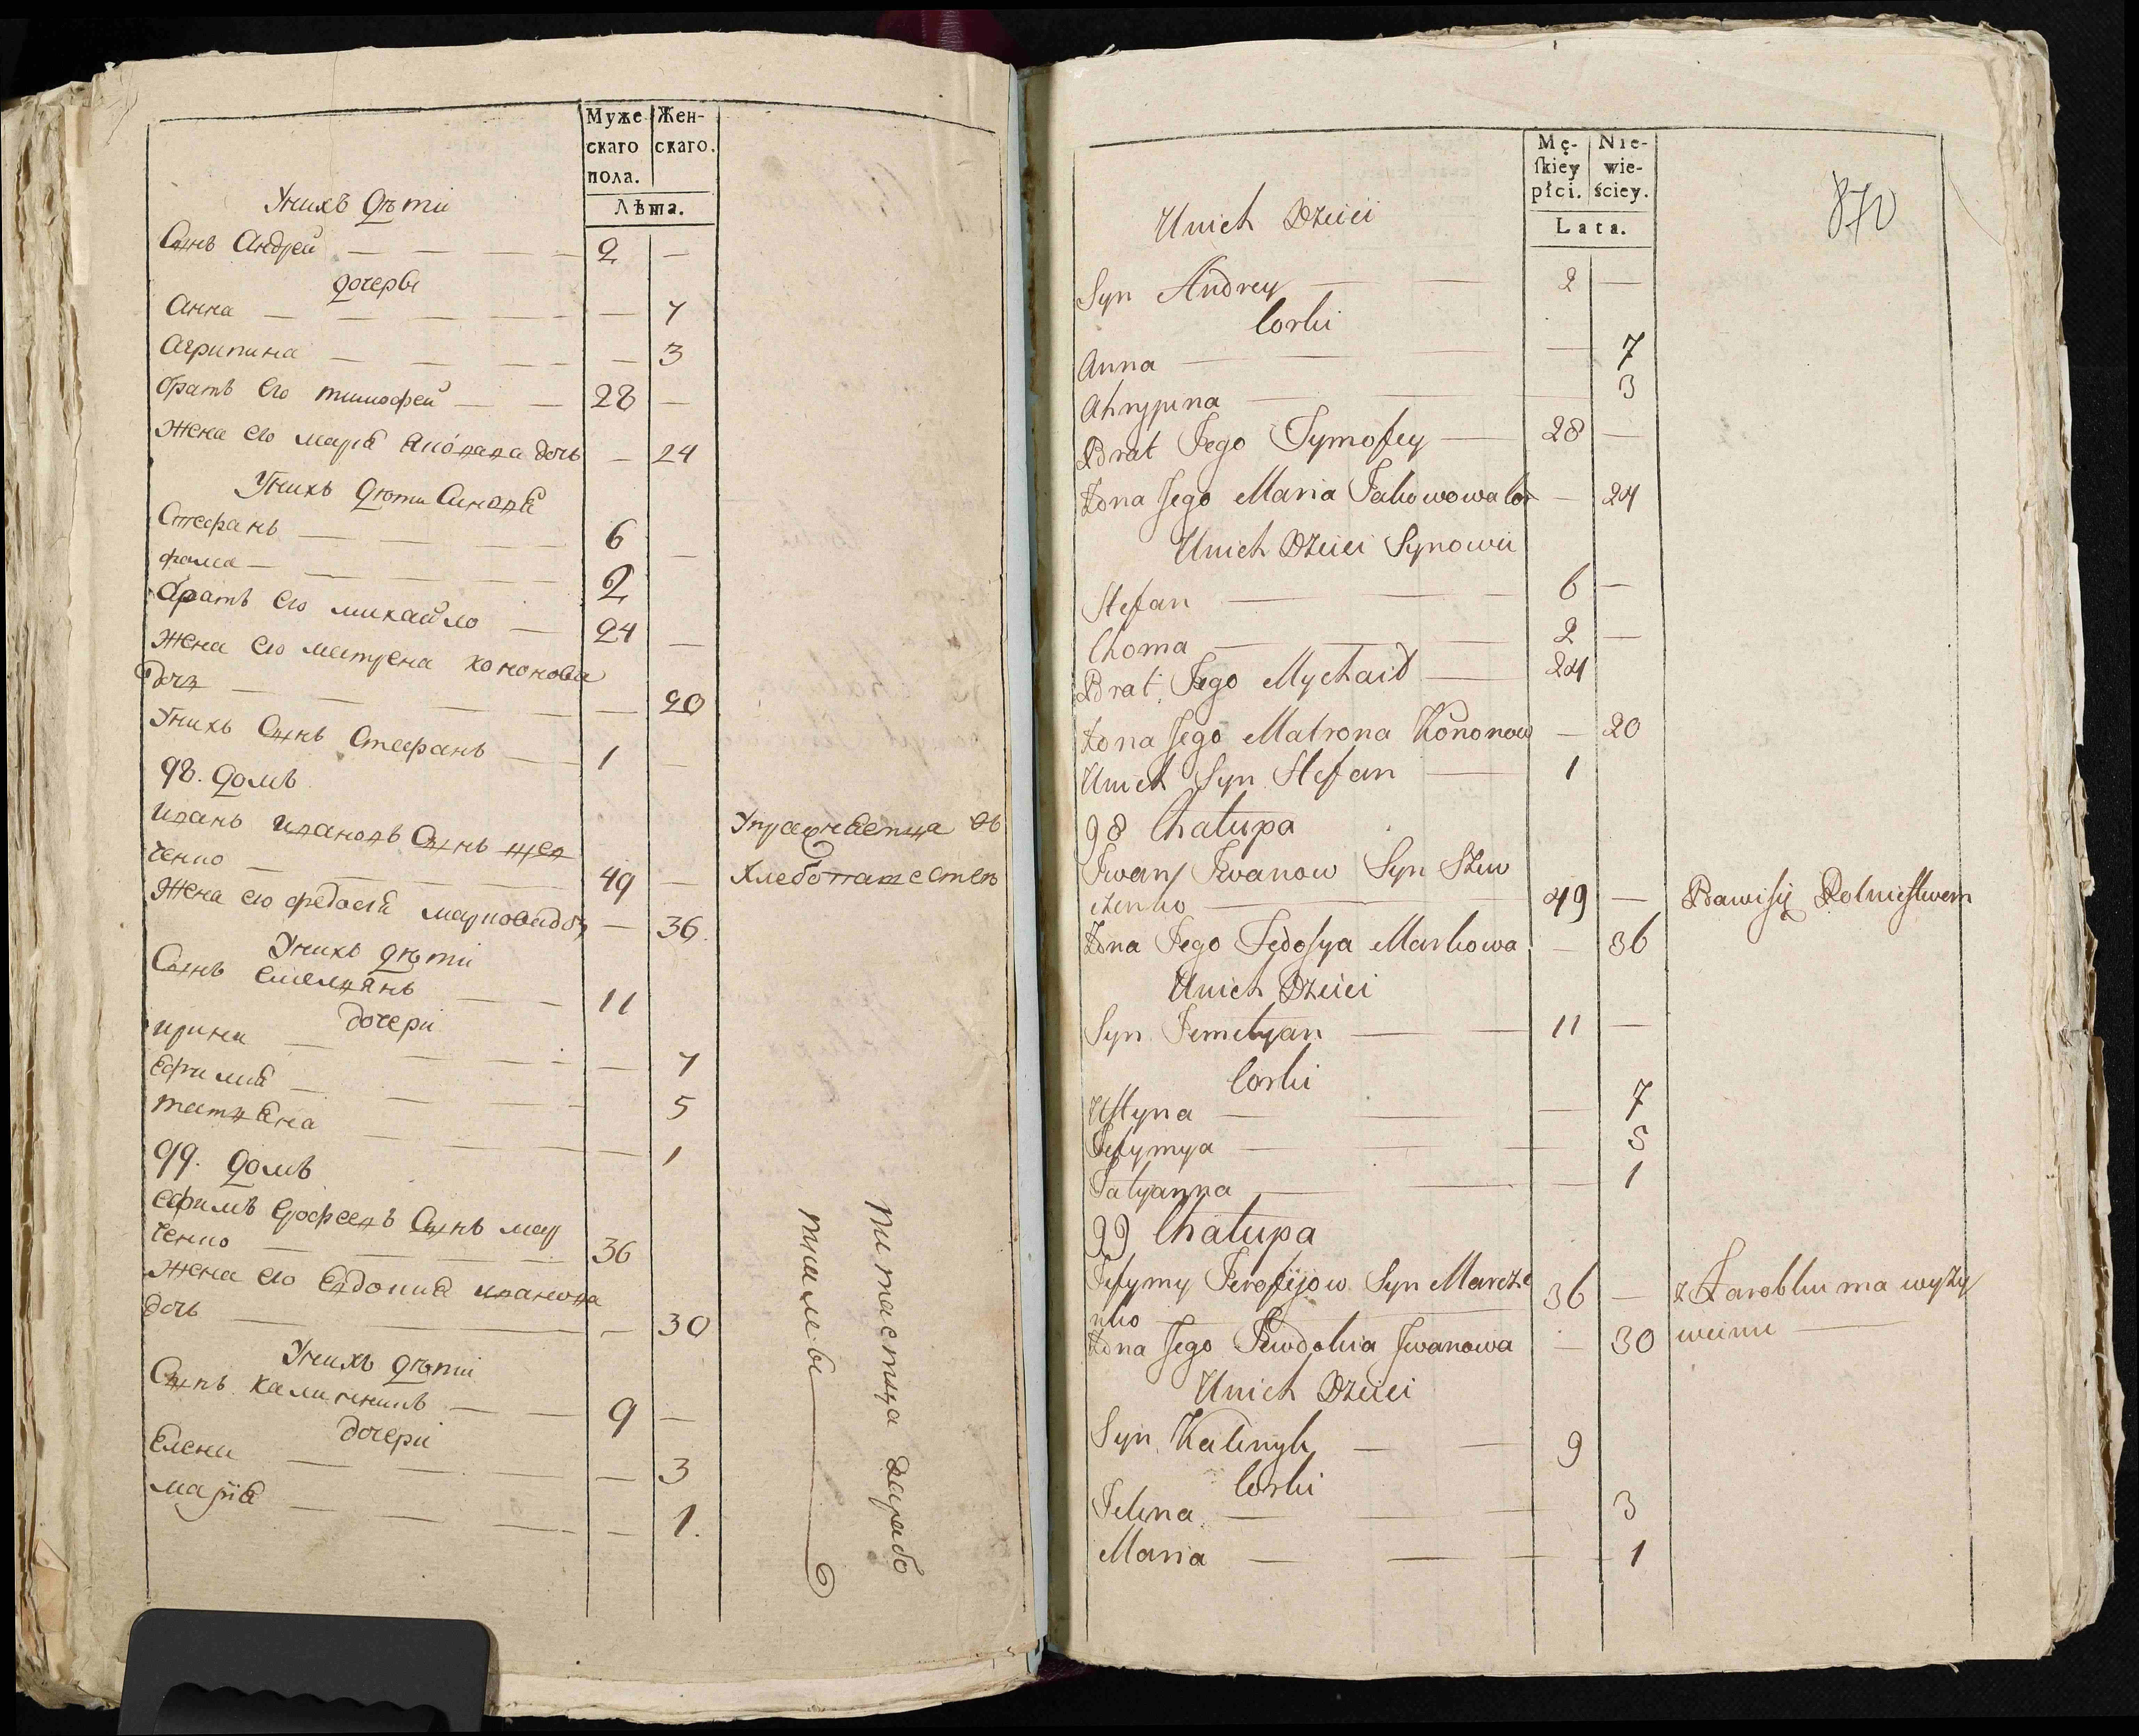 Муже
скаго
пола.
Жен-
скаго.
Лѣта.
Унихъ дѣти
Сынъ Андрей — — — — 2 —
дочеры
Анна — — — — — 7
Агрипина — — — — — 3
братъ его тимофей — — 28 —
Жена его марія дочь — 24
Унихъ дѣти Синовя
Стефанъ — — — — 6 —
фома — — — — — 2
братъ его михайло — 24 —
Жена его матрена кононова
дочъ — — — — — 20
Унихъ Сынъ Стефанъ — — 1 —
98. домъ
иванъ ивановъ Сынъ шев
ченко — — — — 49 —
Упражняетца въ
хлебопашестве
Жена его федосія маркова доч — 36.
Унихъ дѣти
Сынъ емелянъ — — 11
дочери
ирина — — — — — 7
Ефимия — — — — 5
татяна — — — — 1
99. домъ
ефимъ ерофеевъ Сынъ мар
ченко — — — 36
Жена его Евдокия иванова
дочь — — — 30
Унихъ дѣти
Сынъ калиникъ — — 9 —
дочери
Елена — — — — — 3
марія — — — — — 1.
питаетца зарабо
тками
Mę-
ſkiey
płci.
Nie-
wie-
ściey.
Lata.
870
Unich Dzieci
Syn Andrey — — 2 —
Corki
Anna — — — — 7
Ahrypina — — 3
Brat Jego Tymofey — 28 —
Żona Jego Maria Jakowowa Cor — 24
Unich Dzieci Synowii
Stefan — — — 6 —
Choma — — 2 —
Brat Jego Mychaił — 24
Żona Jego Matrona Kononow — 20
Unich Syn Stefan — 1
98 Chałupa
Iwan Iwanow Syn Szew
czenko — 49 — Bawi się Rolnictwem
Żona Jego Fedosya Markowa — 36
Unich Dzieci
Syn Jemelyan — — 11 —
Corki
Ustyna — — — 7
Jefymya — — — 5
Tatyanna — — — 1
99 Chałupa
Jefymy Jerofijow Syn Marcze
nko — 36 — z Zarobku ma wyży
wieniu —
Żona Jego Jewdokia Iwanowa — 30
Unich Dzieci
Syn Kalinyk — — 9
Corki
Jelena — — 3
Maria — — — — 1